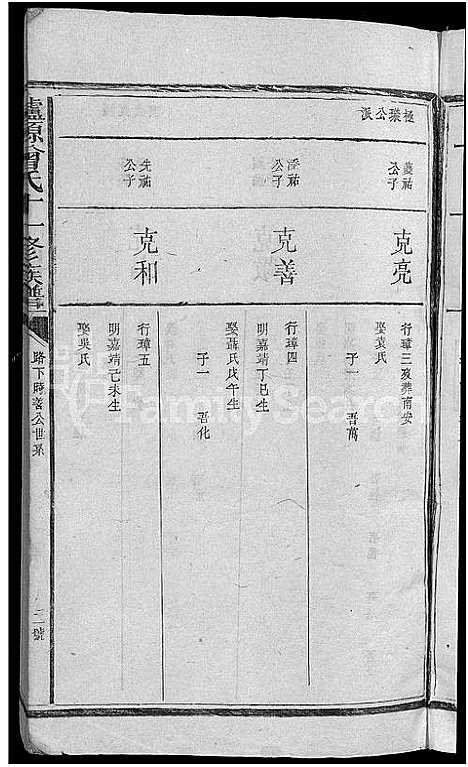 極璨公派
蔆祐公子
克亮
行璋三歿葬南安
娶袁氏
子一　吾萬
潘祐公子
克善
行璋四
明嘉靖丁巳生
娶聶氏戊午生
子一　吾化
先祐公子
克和
行璋五
明嘉靖己未生
娶吳氏
瀘源曾氏十一修族譜
路下時善公世系
二號
FamilySearch